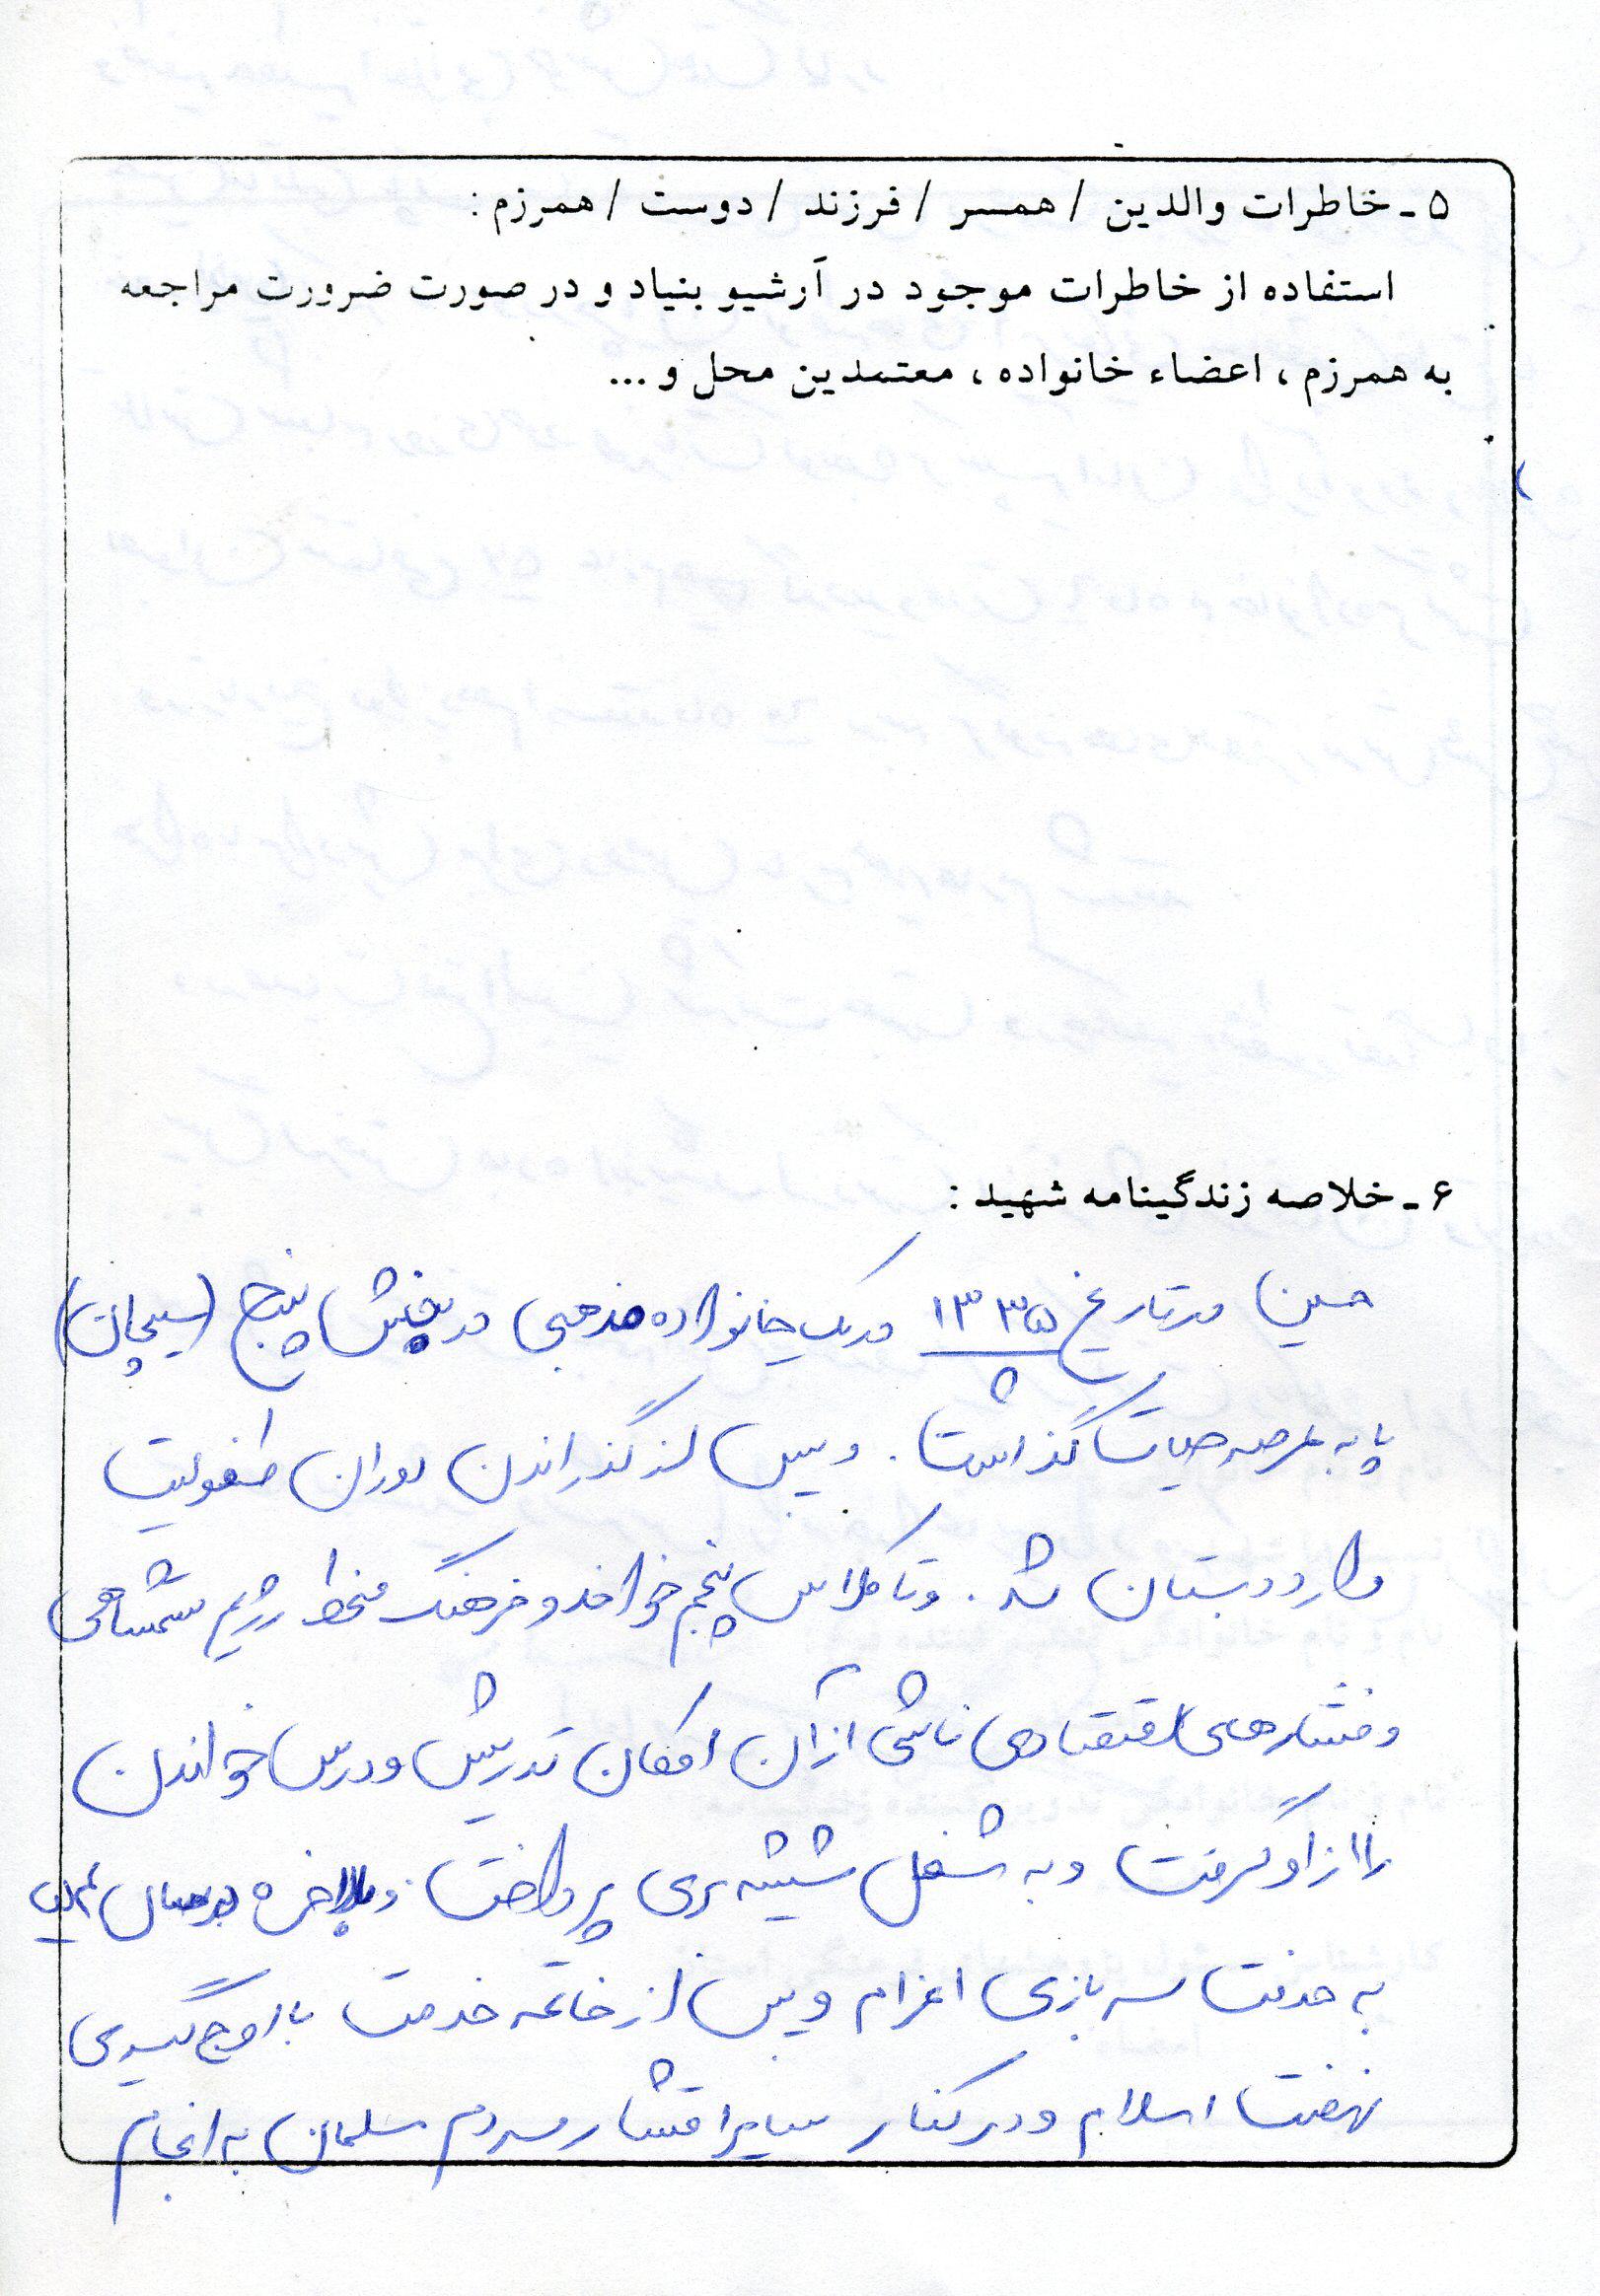 ۵ ـ خاطرات والدین / همسر / فرزند / دوست / همرزم :
استفاده از خاطرات موجود در آرشیو بنیاد و در صورت ضرورت مراجعه
به همرزم ، اعضاء خانواده ، معتمدین محل و ...
۶ ـ خلاصه زندگینامه شهید :
حسین در تاریخ ۱۳۳۵ در یک خانواده مذهبی در بخش پنج (سیچان)
پا به عرصه حیات گذاشت . و پس از گذراندن دوران طفولیت
وارد دبستان شد . و تا کلاس پنجم خواند و فرهنگ منحط رژیم شمشاهی
و فشارهای اقتصادی ناشی از آن امکان تدریس و درس خواندن
را از او گرفت و به شغل شیشه بری پرداخت . و بلاخره در سال
به خدمت سربازی اعزام و پس از خاتمه خدمت با اوج گیری
نهضت اسلام و در کنار سایر اقشار مردم مسلمان به انجام